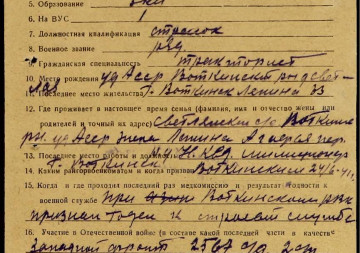 5. Образование
6. На ВУС 1
7. Должностная квалификация стрелок
8. Военное звание ряд
9. Гражданская специальность тракторист
10. Место рождения уд Асср Воткинский
11. Последнее место жительства г. Воткинск Ленина 33
12. Где проживает в настоящее время семья (фамилия, имя и отчество жены или
родителей и точный их адрес) с/с Воткинск
рн. уд Асср жена Ленина
13. Последнее место работы и должность НКВД милиционер
г. Воткинск
14. Каким райгорвоенкоматом и когда призван Воткинским 24/6-41
15. Когда и где проходил последний раз медкомиссию и результат годности к
военной службе при Воткинском рвк
признан годен к строевой службе
16. Участие в Отечественной войне (в составе какой последней части и качестве
Западной фронт 2567